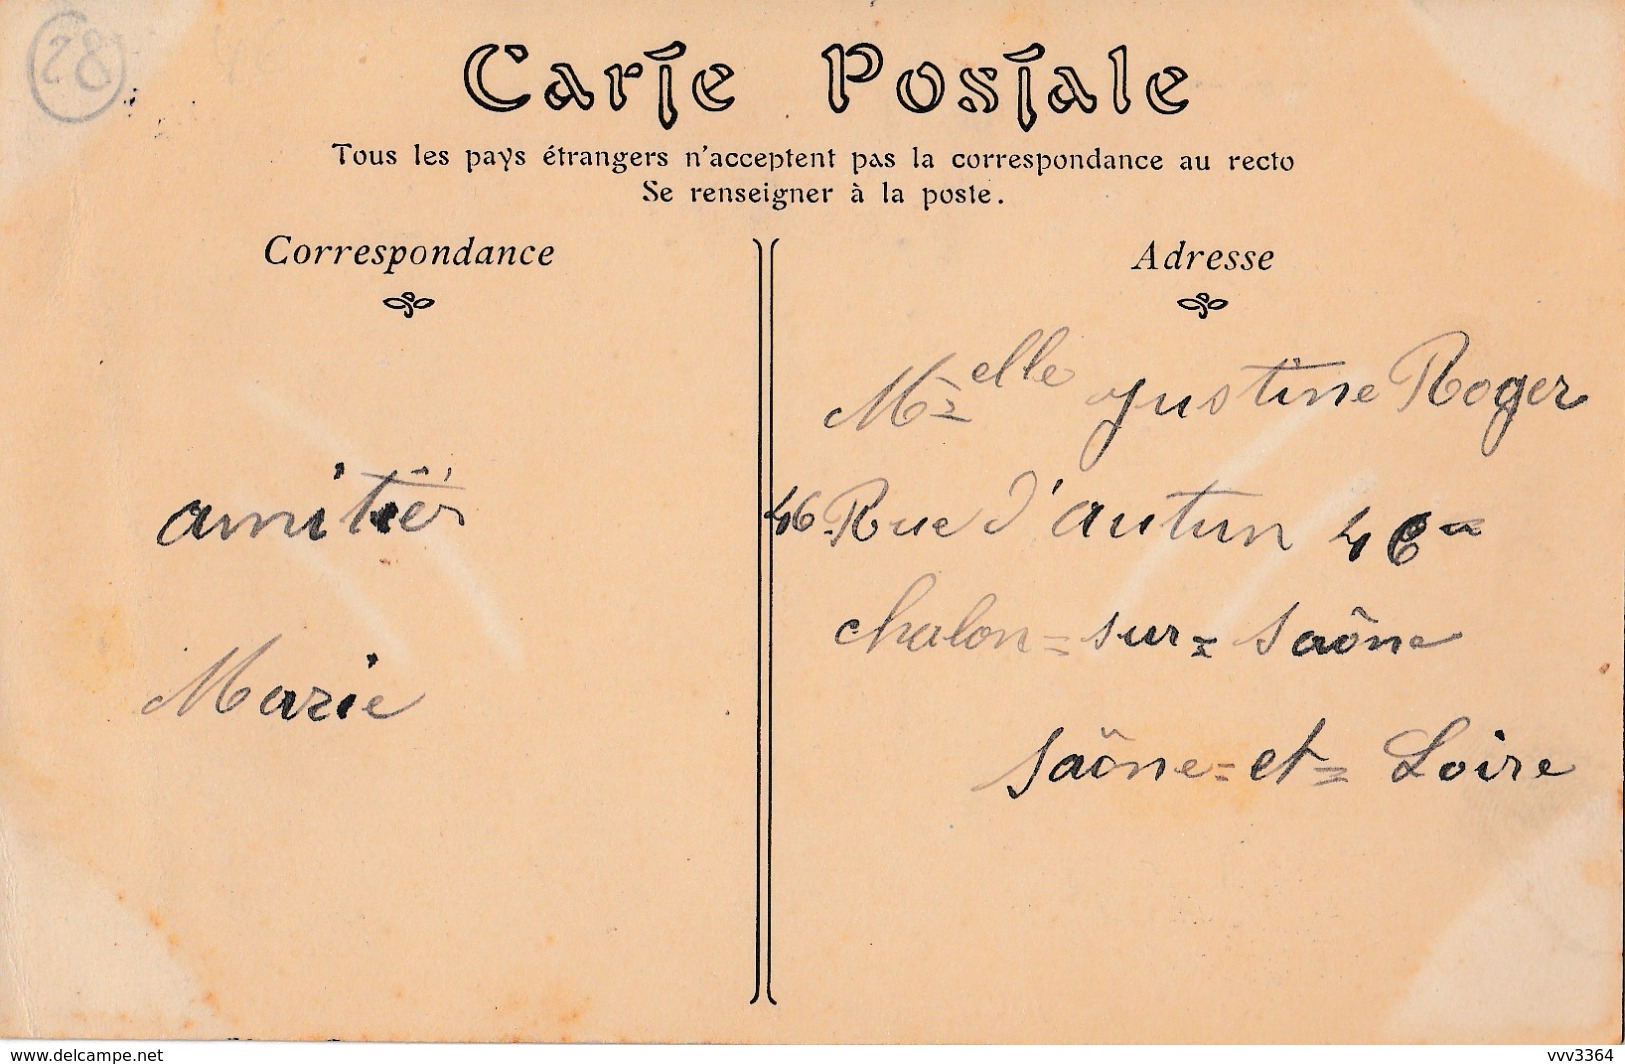 28
Carte Postale
Tous les pays étrangers n'acceptent pas la correspondance au recto
Se renseigner à la poste.
Correspondance
Adresse
amitiés
Marie
Melle Justine Roger
46 Rue d'autun 46
chalon=sur=Saône
Saône=et=Loire
www.delcampe.net
vvv3364